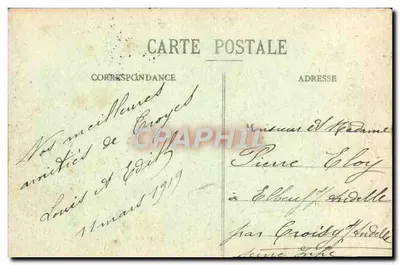 CARTE POSTALE
CORRESPONDANCE
ADRESSE
Nos meilleures
amitiés de Troyes
Louis et Edith
11 mars 1919
Monsieur et Madame
Pierre Eloy
à Elbeuf s/ Andelle
par Croisy s/ Andelle
Seine Infre
CARTE POSTALE